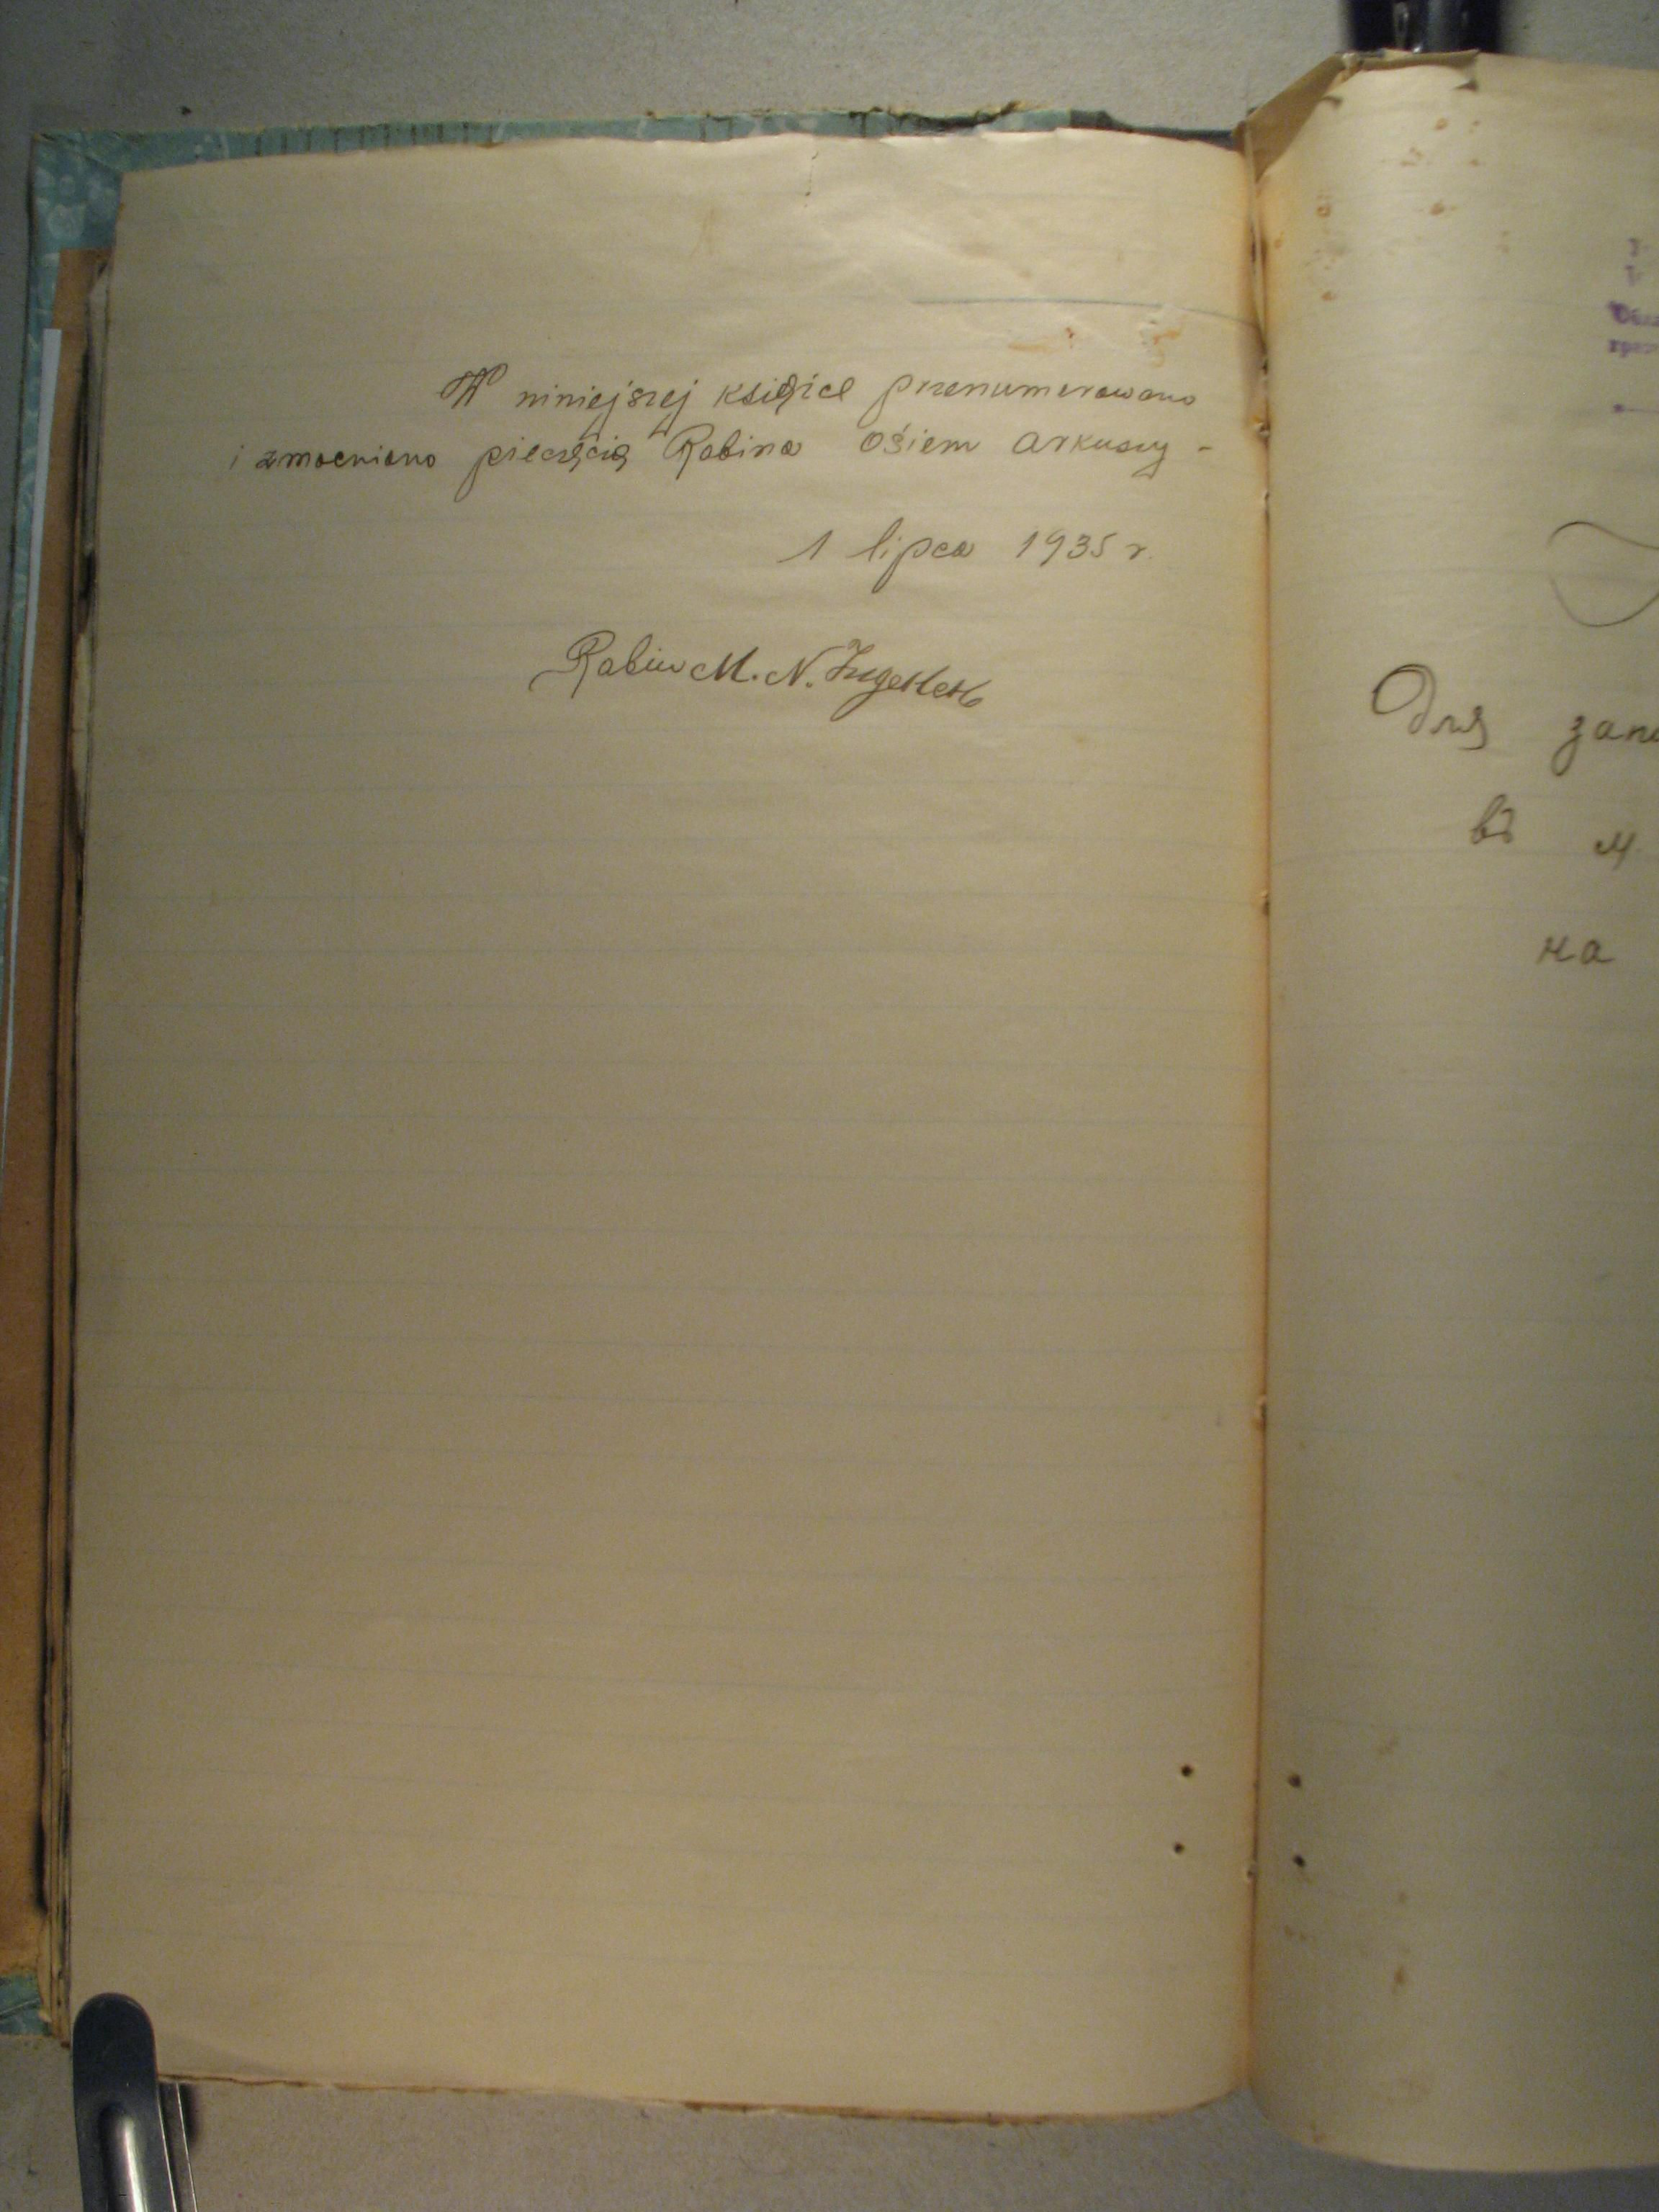 W niniejszej księżce przenumerowano
i zmocniono pieczęcią Rabina ośiem arkuszy -
1 lipca 1935 r.
Rabin M. N.
Для
въ м.
на